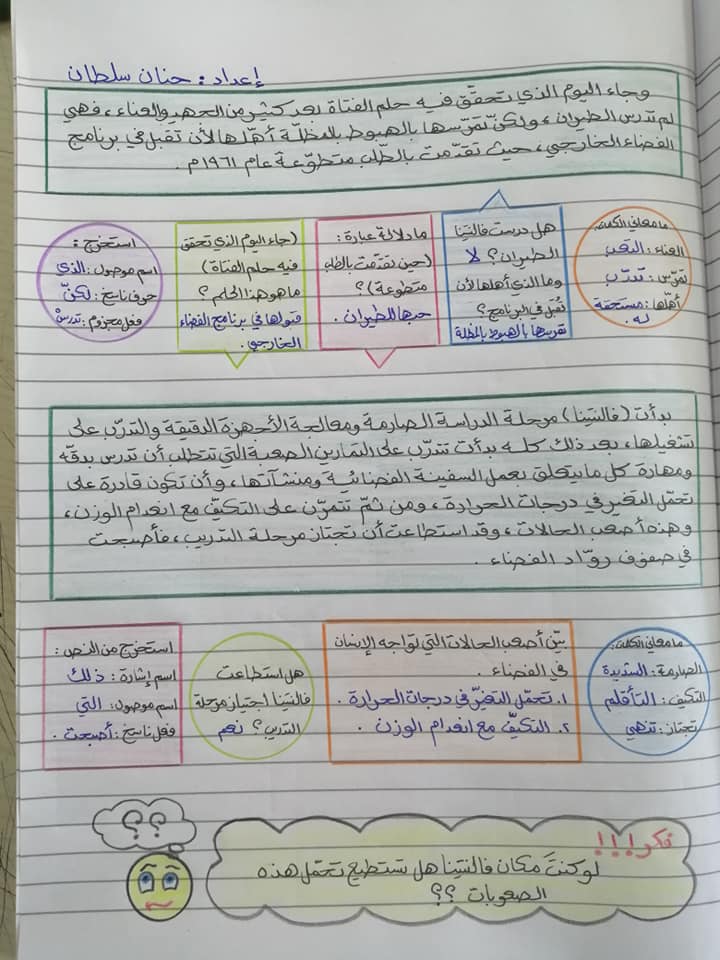 إعداد: حنان سلطان
وجاء اليوم الذي تحقّق فيه حلم الفتاة بعد كثير من الجهد والعناء، فهي
لم تدرس الطيران، ولكنّ تمرّسها بالهبوط بالمظلّة أهّلها لأن تقبل في برنامج
الفضاء الخارجي، حيث تقدّمت بالطّلب متطوّعة عام ١٩٦١م.
ما معاني الكلمة:
العناء: التعب
تمرّس: تدرّب
أهلّها: مستحقة
له.
هل درست فالنتينا
الطيران؟ لا
وما الذي أهلها لأن
تُقبل في البرنامج؟
تمرسها بالهبوط بالمظلة
ما دلالة عبارة:
(حين تقدّمت بالطلب
متطوعة)؟
حبها للطيران.
(جاء اليوم الذي تحقق
فيه حلم الفتاة)
ما هو هذا الحلم؟
قبولها في برنامج الفضاء
الخارجي.
استخرج:
اسم موصول: الذي
حرف ناسخ: لكنّ
فعل مجزوم: تدرسْ
بدأت (فالنتينا) مرحلة الدراسة الصارمة ومعالجة الأجهزة الدقيقة والتدرّب على
تشغيلها، بعد ذلك كله بدأت تتدرّب على التمارين الصعبة التي تتطلب أن تدرس بدقه
ومهارة كل ما يتعلق بعمل السفينة الفضائية ومنشآتها، وأن تكون قادرة على
تحمّل التغير في درجات الحرارة، ومن ثمّ تتمرّن على التكيّف مع انعدام الوزن،
وهذه أصعب الحالات، وقد استطاعت أن تجتاز مرحلة التدريب، فأصبحت
في صفوف روّاد الفضاء.
ما معاني الكلمة:
الصارمة: الشديدة
التكيف: التأقلم
تجتاز: تنهي
بيّن أصعب الحالات التي تواجه الإنسان
في الفضاء.
١. تحمّل التغيّر في درجات الحرارة.
٢. التكيّف مع انعدام الوزن.
هل استطاعت
فالنتينا اجتياز مرحلة
التدريب؟ نعم
استخرج من النص:
اسم إشارة: ذلك
اسم موصول: التي
فعل ناسخ: أصبحت.
؟؟
فكر!!!
لو كنتَ مكان فالنتينا هل تستطيع تحمّل هذه
الصعوبات ؟؟